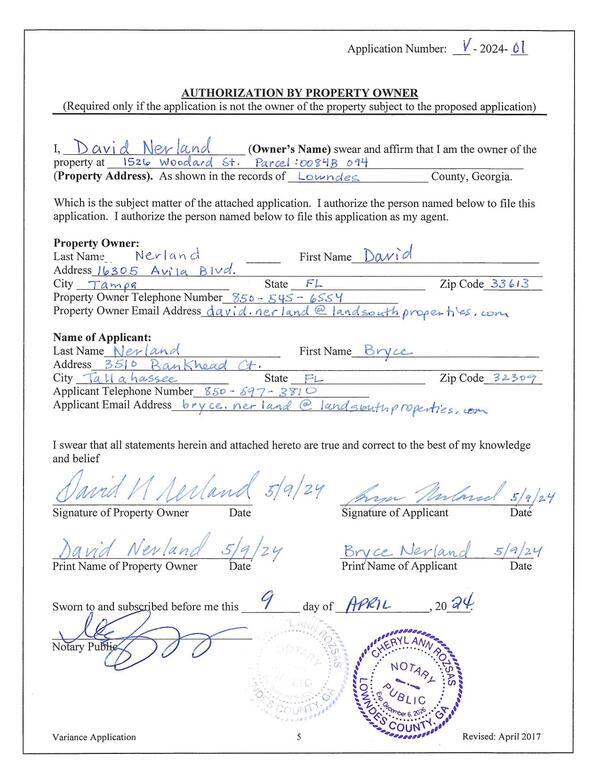 Application Number: V - 2024- 01
AUTHORIZATION BY PROPERTY OWNER
(Required only if the application is not the owner of the property subject to the proposed application)
I, David Nerland (Owner's Name) swear and affirm that I am the owner of the
property at 1526 Woodard St. Parcel:0084B 094
(Property Address). As shown in the records of Lowndes County, Georgia.
Which is the subject matter of the attached application. I authorize the person named below to file this
application. I authorize the person named below to file this application as my agent.
Property Owner:
Last Name Nerland First Name David
Address 16305 Avila Blvd.
City Tampa State FL Zip Code 33613
Property Owner Telephone Number 850-545-6554
Property Owner Email Address david.nerland@landsouthproperties.com
Name of Applicant:
Last Name Nerland First Name Bryce
Address 3510 Bankhead Ct.
City Tallahassee State FL Zip Code 32309
Applicant Telephone Number 850-597-3810
Applicant Email Address bryce.nerland@landsouthproperties.com
I swear that all statements herein and attached hereto are true and correct to the best of my knowledge
and belief
David N Nerland 5/9/24 Bryce Nerland 5/9/24
Signature of Property Owner Date Signature of Applicant Date
David Nerland 5/9/24 Bryce Nerland 5/9/24
Print Name of Property Owner Date Print Name of Applicant Date
Sworn to and subscribed before me this 9 day of APRIL, 20 24.
Notary Public
CHERYL ANN ROZSAS
NOTARY
PUBLIC
Exp. December 6, 2026
LOWNDES COUNTY, GA
Variance Application 5 Revised: April 2017